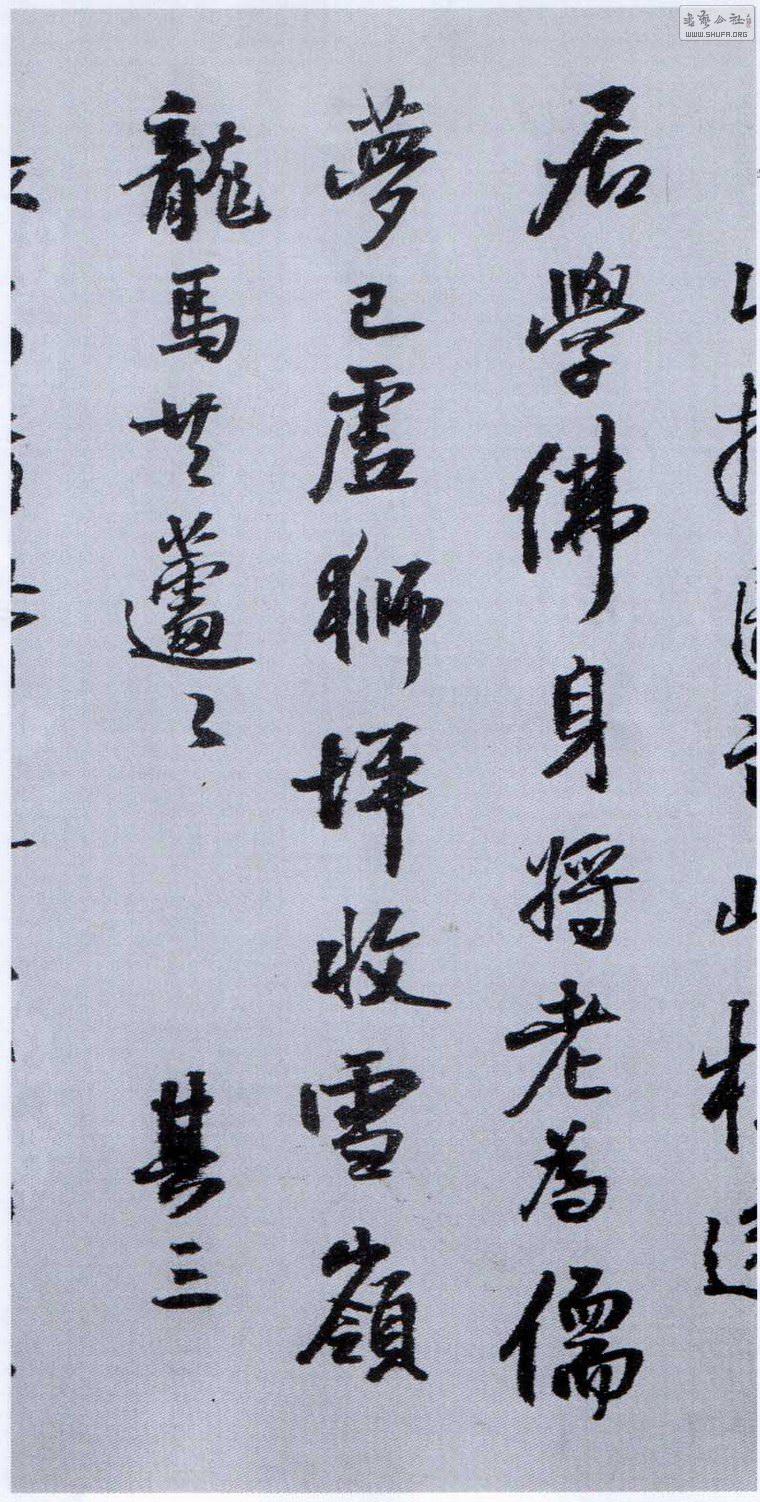 居學佛身將老為儒
夢已虛獅坪收雪嶺
龍馬共蘧〻
其三
書法公社
WWW.SHUFA.ORG